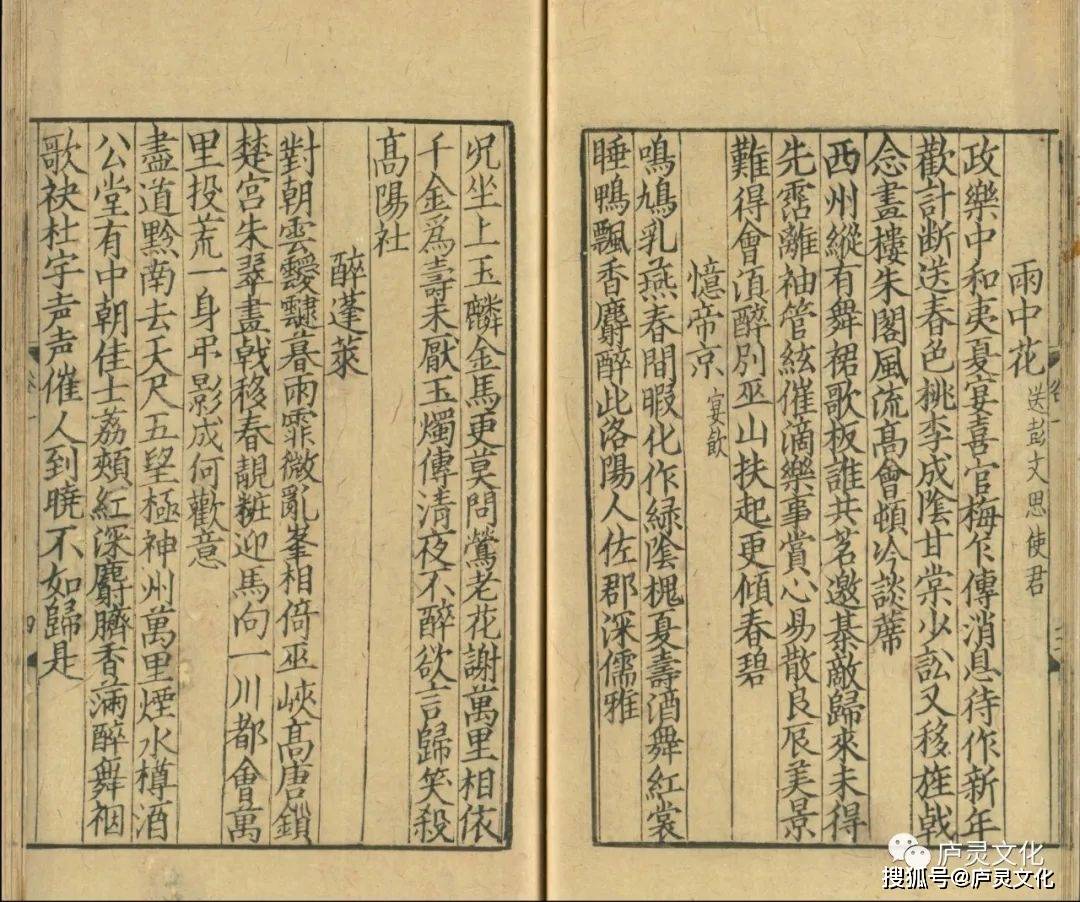 雨中花 送彭文思使君
政樂中和夷夏宴喜官梅乍傳消息待作新年
歡計断送春色桃李成陰甘棠少訟又移旌戟
念畫樓朱閣風流高會頓冷談蓆
西州縱有舞裙歌板誰共茗邀棊敵歸來未得
先霑離袖管絃催滴樂事賞心易散良辰美景
難得會湏醉別巫山扶起更傾春碧
憶帝京 宴飲
鳴鳩乳燕春間暇化作緑陰槐夏壽酒舞紅裳
睡鴨飄香麝醉此洛陽人佐郡深儒雅
况坐上玉麟金馬更莫問鶯老花謝萬里相依
千金爲壽未厭玉燭傳清夜不醉欲言歸笑殺
高陽社
醉蓬萊
對朝雲靉靆暮雨霏微亂峯相倚巫峽高唐鎖
楚宮朱翠畫戟移春靚粧迎馬向一川都會萬
里投荒一身弔影成何歡意
盡道黔南去天尺五望極神州萬里煙水樽酒
公堂有中朝佳士荔頰紅深麝臍香滿醉舞裀
歌袂杜宇声声催人到曉不如歸是
四
庐灵文化
搜狐号@庐灵文化